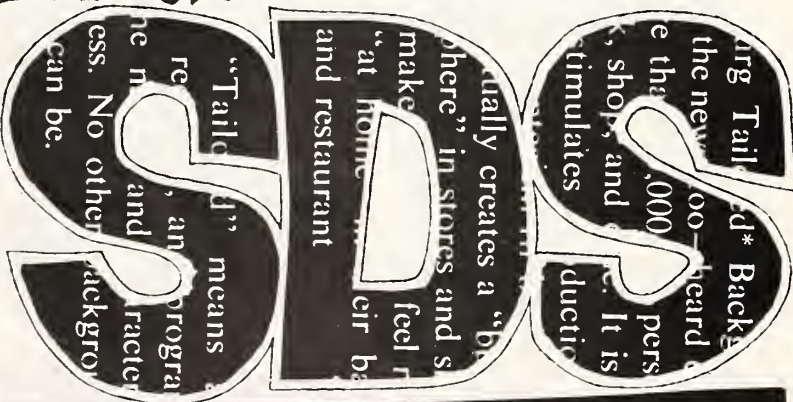 SDS
urg Tail ed* Backg
the new oo—heard
e tha ,000 pers
k, shop, and e. It is
timulates ductio
tually creates a "b
phere" in stores and s
make feel
"at home eir ba
and restaurant
"Tailo d" means
re , an progra
he m and racter
ess. No other ackgro
can be.